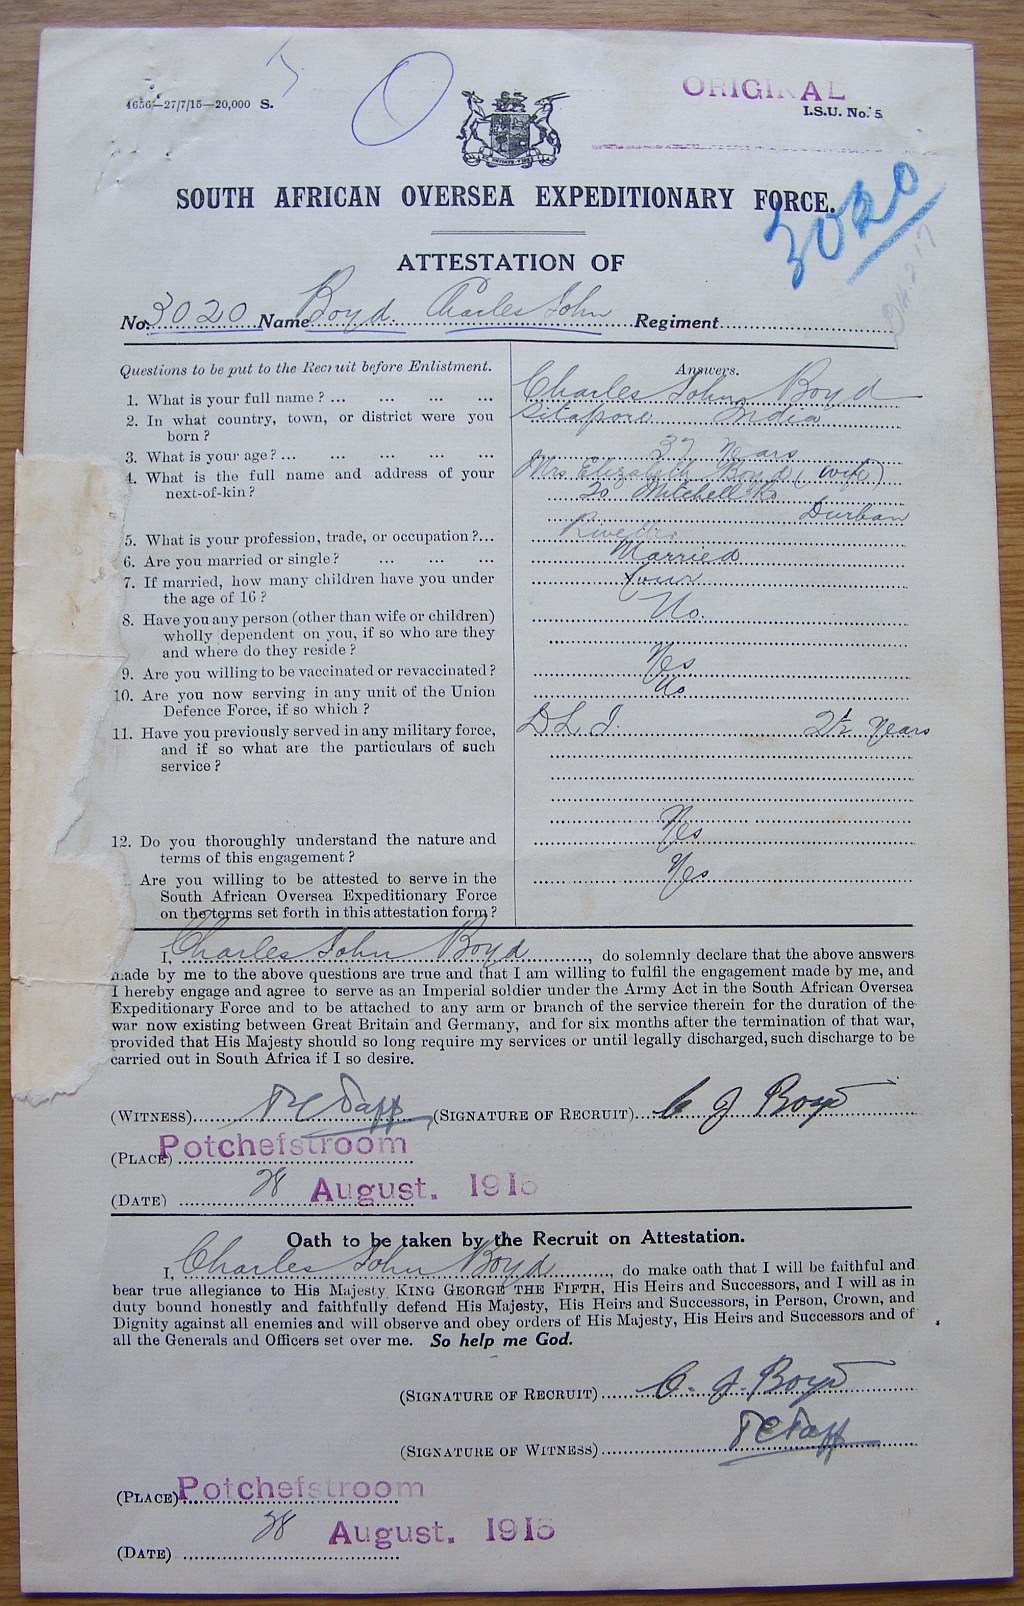 4656—27/7/15—20,000 S.
ORIGINAL
I.S.U. No. 5
SOUTH AFRICAN OVERSEA EXPEDITIONARY FORCE.
3020
ATTESTATION OF
No. 3020 Name Boyd. Charles John Regiment
Questions to be put to the Recruit before Enlistment.
Answers.
1. What is your full name ? ... ... ... ...
Charles John Boyd
2. In what country, town, or district were you
born ?
Sitapore India
3. What is your age ? ... ... ... ... ...
37 Years
4. What is the full name and address of your
next-of-kin ?
Mrs Elizabeth Boyd (wife)
20 Mitchell Rd
Durban
5. What is your profession, trade, or occupation ?...
6. Are you married or single ? ... ... ...
Married
7. If married, how many children have you under
the age of 16 ?
Four
8. Have you any person (other than wife or children)
wholly dependent on you, if so who are they
and where do they reside ?
No.
9. Are you willing to be vaccinated or revaccinated ?
Yes
10. Are you now serving in any unit of the Union
Defence Force, if so which ?
No
11. Have you previously served in any military force,
and if so what are the particulars of such
service ?
D L I. 2½ Years
12. Do you thoroughly understand the nature and
terms of this engagement ?
Yes
Are you willing to be attested to serve in the
South African Oversea Expeditionary Force
on the terms set forth in this attestation form ?
Yes
I, Charles John Boyd, do solemnly declare that the above answers
made by me to the above questions are true and that I am willing to fulfil the engagement made by me, and
I hereby engage and agree to serve as an Imperial soldier under the Army Act in the South African Oversea
Expeditionary Force and to be attached to any arm or branch of the service therein for the duration of the
war now existing between Great Britain and Germany, and for six months after the termination of that war,
provided that His Majesty should so long require my services or until legally discharged, such discharge to be
carried out in South Africa if I so desire.
(WITNESS) (SIGNATURE OF RECRUIT) C J Boyd
(PLACE) Potchefstroom
(DATE) 28 August. 1915
Oath to be taken by the Recruit on Attestation.
I, Charles John Boyd, do make oath that I will be faithful and
bear true allegiance to His Majesty KING GEORGE THE FIFTH, His Heirs and Successors, and I will as in
duty bound honestly and faithfully defend His Majesty, His Heirs and Successors, in Person, Crown, and
Dignity against all enemies and will observe and obey orders of His Majesty, His Heirs and Successors and of
all the Generals and Officers set over me. So help me God.
(SIGNATURE OF RECRUIT) C. J. Boyd
(SIGNATURE OF WITNESS)
(PLACE) Potchefstroom
(DATE) 28 August. 1915